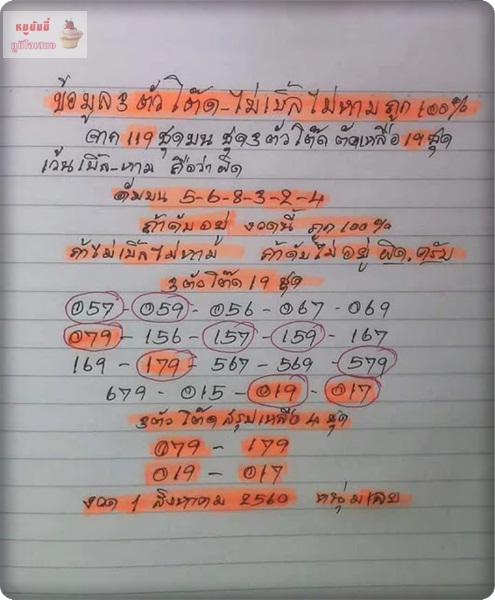 หมูบันนี่
ภูมิใจเสนอ
ข้อมูล 3 ตัวโต๊ด - ไม่เบิ้ลไม่หาม ถูก 100%
จาก 119 ชุดบน ชุด 3 ตัวโต๊ด ตัดเหลือ 19 ชุด
เว้นเบิ้ล - หาม ถือว่าผิด
ดับบน 5-6-8-3-2-4
ถ้าดับอยู่ งวดนี้ ถูก 100%
ถ้าไม่เบิ้ลไม่หาม ถ้าดับไม่อยู่ ผิด.ครับ
3 ตัวโต๊ด 19 ชุด
057 - 059 - 056 - 067 - 069
079 - 156 - 157 - 159 - 167
169 - 179 - 567 - 569 - 579
679 - 015 - 019 - 017
3 ตัวโต๊ด สรุปเหลือ 4 ชุด
079 - 179
019 - 017
งวด 1 สิงหาคม 2560 หนุ่มเลย